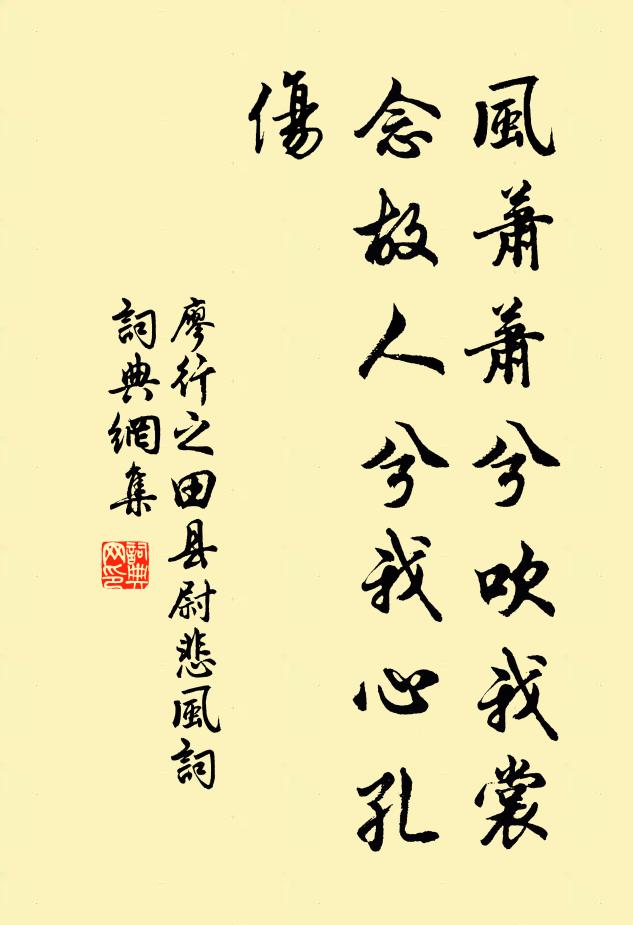 風蕭蕭兮吹我裳
念故人兮我心孔
傷
廖行之田县尉悲風詞
詞典網集
詞典
网印